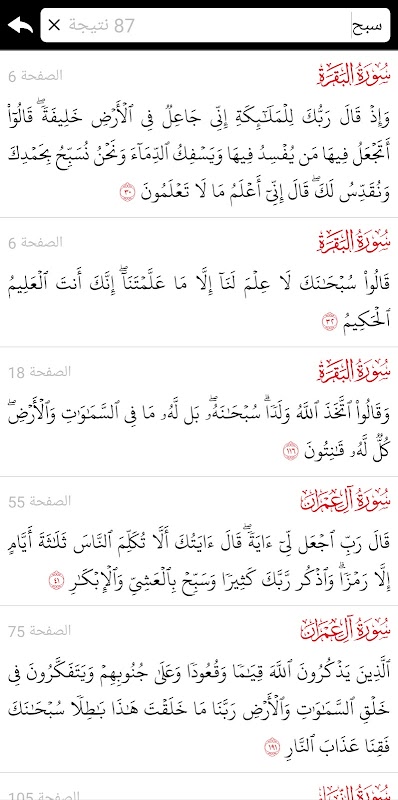 سبح
87 نتيجة ×
سُورَةُ البَقَرَةِ
الصفحة 6
وَإِذۡ قَالَ رَبُّكَ لِلۡمَلَـٰٓئِكَةِ إِنِّي جَاعِلٞ فِي ٱلۡأَرۡضِ خَلِيفَةٗۖ قَالُوٓاْ
أَتَجۡعَلُ فِيهَا مَن يُفۡسِدُ فِيهَا وَيَسۡفِكُ ٱلدِّمَآءَ وَنَحۡنُ نُسَبِّحُ بِحَمۡدِكَ
وَنُقَدِّسُ لَكَۖ قَالَ إِنِّيٓ أَعۡلَمُ مَا لَا تَعۡلَمُونَ ٣٠
سُورَةُ البَقَرَةِ
الصفحة 6
قَالُواْ سُبۡحَٰنَكَ لَا عِلۡمَ لَنَآ إِلَّا مَا عَلَّمۡتَنَآۖ إِنَّكَ أَنتَ ٱلۡعَلِيمُ
ٱلۡحَكِيمُ ٣٢
سُورَةُ البَقَرَةِ
الصفحة 18
وَقَالُواْ ٱتَّخَذَ ٱللَّهُ وَلَدٗاۗ سُبۡحَٰنَهُۥۖ بَل لَّهُۥ مَا فِي ٱلسَّمَٰوَٰتِ وَٱلۡأَرۡضِۖ
كُلّٞ لَّهُۥ قَٰنِتُونَ ١١٦
سُورَةُ آلِ عِمۡرَانَ
الصفحة 55
قَالَ رَبِّ ٱجۡعَل لِّيٓ ءَايَةٗۖ قَالَ ءَايَتُكَ أَلَّا تُكَلِّمَ ٱلنَّاسَ ثَلَٰثَةَ أَيَّامٍ
إِلَّا رَمۡزٗاۗ وَٱذۡكُر رَّبَّكَ كَثِيرٗا وَسَبِّحۡ بِٱلۡعَشِيِّ وَٱلۡإِبۡكَٰرِ ٤١
سُورَةُ آلِ عِمۡرَانَ
الصفحة 75
ٱلَّذِينَ يَذۡكُرُونَ ٱللَّهَ قِيَٰمٗا وَقُعُودٗا وَعَلَىٰ جُنُوبِهِمۡ وَيَتَفَكَّرُونَ فِي
خَلۡقِ ٱلسَّمَٰوَٰتِ وَٱلۡأَرۡضِ رَبَّنَا مَا خَلَقۡتَ هَٰذَا بَٰطِلٗا سُبۡحَٰنَكَ
فَقِنَا عَذَابَ ٱلنَّارِ ١٩١
سُورَةُ النِّسَاءِ
الصفحة 105